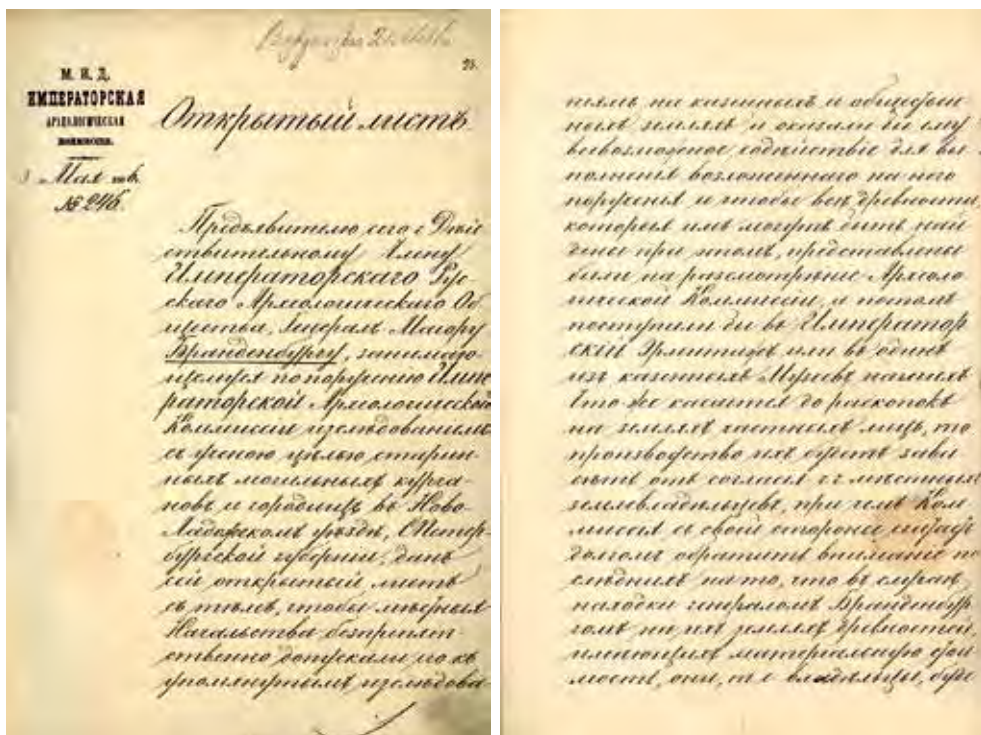 25.
М. И. Д.
ИМПЕРАТОРСКАЯ
АРХЕОЛОГИЧЕСКАЯ
КОММИССІЯ.
Мая
№ 246.
Открытый листъ.
Предъявителю сего г. Дѣй
ствительному Члену
Императорскаго Рус
скаго Археологическаго Об
щества, Генералъ-Маіору
Бранденбургу, занимаю-
щемуся по порученію Импе
раторской Археологической
Коммиссіи изслѣдованіемъ
съ ученою цѣлью старин-
ныхъ могильныхъ курга-
новъ и городищъ въ Ново-
Ладожскомъ уѣздѣ, С.Петер-
бургской губерніи, данъ
сей открытый листъ
съ тѣмъ, чтобы мѣстныя
Начальства безпрепят-
ственно допускали его къ
упомянутымъ изслѣдова-
ніямъ на казенныхъ и обществен
ныхъ земляхъ и оказали бы ему
всевозможное содѣйствіе для вы
полненія возложеннаго на него
порученія и чтобы всѣ древности,
которыя имъ могутъ быть най
дены при этомъ, представлены
были на разсмотрѣніе Археоло
гической Коммиссіи, и потомъ
поступили бы въ Император
скій Эрмитажъ или въ одинъ
изъ казенныхъ Музеевъ нашихъ
Что же касается до раскопокъ
на земляхъ частныхъ лицъ, то
производство ихъ будетъ зави
сѣть отъ согласія г.г. мѣстныхъ
землевладѣльцевъ, при чемъ Ком
миссія съ своей стороны считаетъ
долгомъ обратить вниманіе по
слѣднихъ на то, что въ случаѣ
находки генераломъ Бранденбур
гомъ на ихъ земляхъ древностей,
имѣющихъ матеріальную стои
мость, они, т. е. владѣльцы, буду